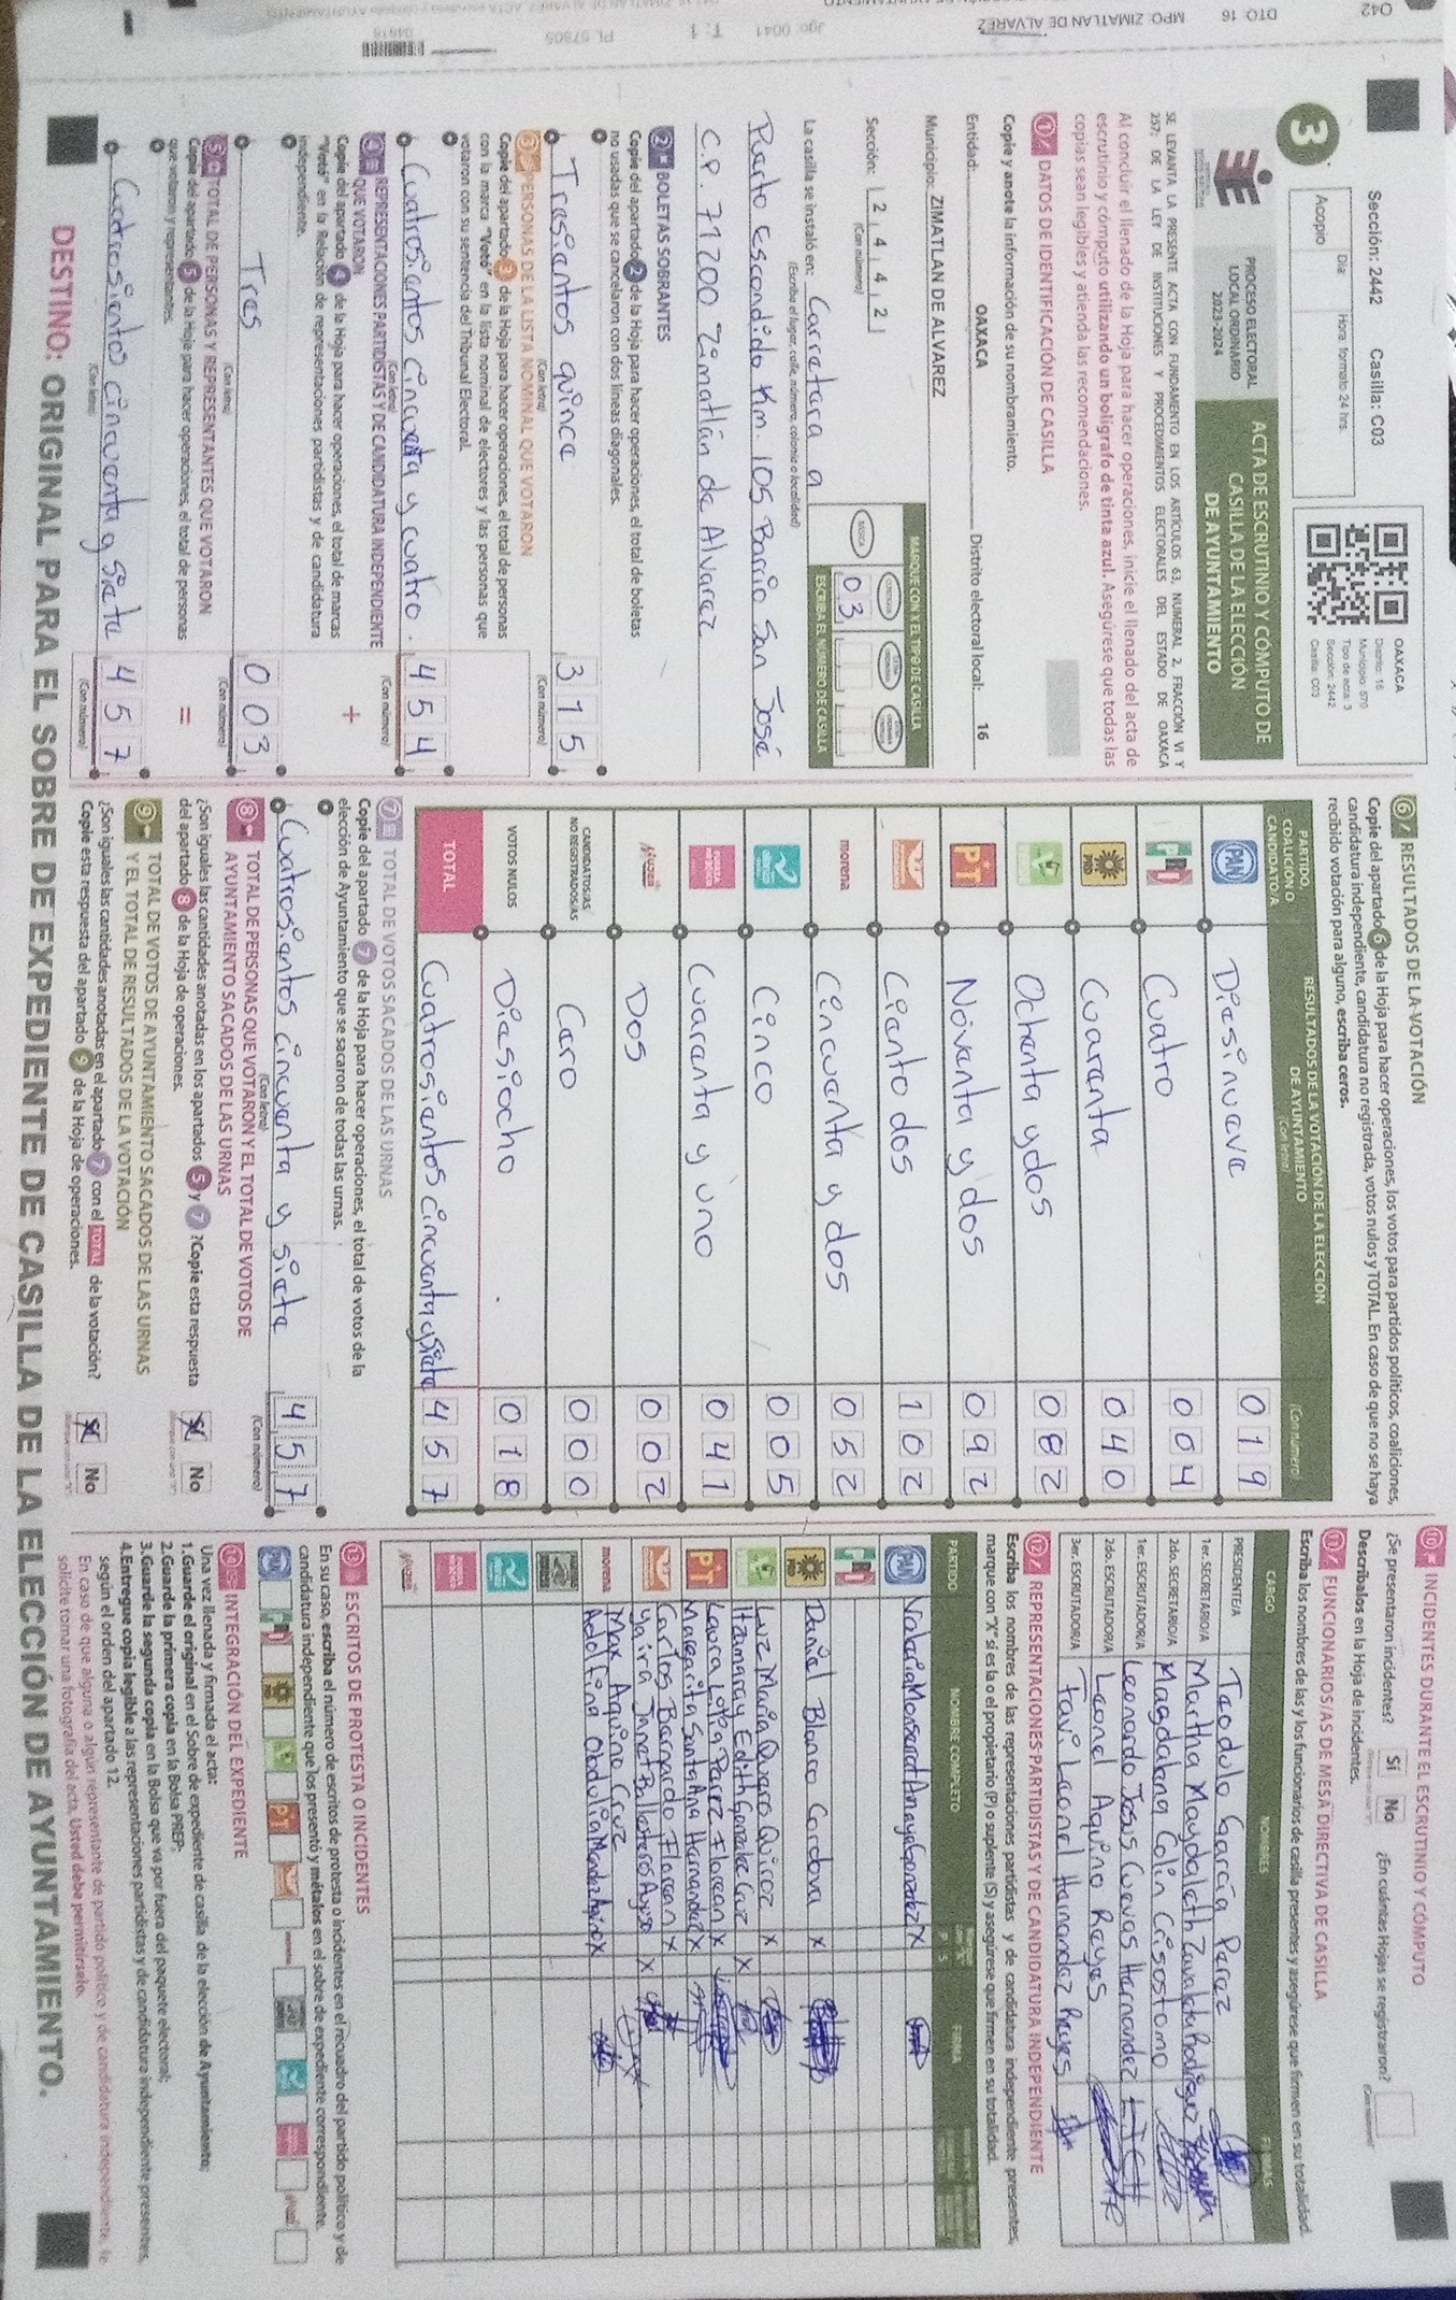 Sección: 2442 Casilla: C03
Día: Hora formato 24 hrs.
Acopio
3
OAXACA
Distrito: 16
Municipio: 570
Tipo de acta: 3
Sección: 2442
Casilla: C03
PROCESO ELECTORAL
LOCAL ORDINARIO
2023-2024
ACTA DE ESCRUTINIO Y CÓMPUTO DE
CASILLA DE LA ELECCIÓN
DE AYUNTAMIENTO
SE LEVANTA LA PRESENTE ACTA CON FUNDAMENTO EN LOS ARTÍCULOS 63, NUMERAL 2, FRACCIÓN VI Y
257; DE LA LEY DE INSTITUCIONES Y PROCEDIMIENTOS ELECTORALES DEL ESTADO DE OAXACA
Al concluir el llenado de la Hoja para hacer operaciones, inicie el llenado del acta de
escrutinio y cómputo utilizando un bolígrafo de tinta azul. Asegúrese que todas las
copias sean legibles y atienda las recomendaciones.
1 DATOS DE IDENTIFICACIÓN DE CASILLA
Copie y anote la información de su nombramiento.
Entidad: OAXACA Distrito electoral local: 16
Municipio: ZIMATLAN DE ALVAREZ
MARQUE CON X EL TIPO DE CASILLA
Sección: 2 4 4 2
(Con número)
BÁSICA
0 3
ESCRIBA EL NÚMERO DE CASILLA
La casilla se instaló en: Carretera a
(Escriba el lugar, calle, número, colonia o localidad)
Puerto Escondido Km. 105 Barrio San José
C.P. 71200 Zimatlán de Alvarez
2 BOLETAS SOBRANTES
Copie del apartado 2 de la Hoja para hacer operaciones, el total de boletas
no usadas que se cancelaron con dos líneas diagonales.
Tresientos quince 3 1 5
(Con letra) (Con número)
3 PERSONAS DE LA LISTA NOMINAL QUE VOTARON
Copie del apartado 3 de la Hoja para hacer operaciones, el total de personas
con la marca "Votó" en la lista nominal de electores y las personas que
votaron con su sentencia del Tribunal Electoral.
Cuatrosientos cincuenta y cuatro. 4 5 4
(Con letra) (Con número)
4 REPRESENTACIONES PARTIDISTAS Y DE CANDIDATURA INDEPENDIENTE
QUE VOTARON
Copie del apartado 4 de la Hoja para hacer operaciones, el total de marcas
"Votó" en la Relación de representaciones partidistas y de candidatura
independiente.
+
Tres 0 0 3
(Con letra) (Con número)
5 TOTAL DE PERSONAS Y REPRESENTANTES QUE VOTARON
Copie del apartado 5 de la Hoja para hacer operaciones, el total de personas
que votaron y representantes.
=
Cuatrosientos cincuenta y siete 4 5 7
(Con letra) (Con número)
6 RESULTADOS DE LA VOTACIÓN
Copie del apartado 6 de la Hoja para hacer operaciones, los votos para partidos políticos, coaliciones,
candidatura independiente, candidatura no registrada, votos nulos y TOTAL. En caso de que no se haya
recibido votación para alguno, escriba ceros.
PARTIDO,
COALICIÓN O
CANDIDATO/A
RESULTADOS DE LA VOTACIÓN DE LA ELECCIÓN
DE AYUNTAMIENTO
(Con letra) (Con número)
PAN Diesinueve 0 1 9
PRI Cuatro 0 0 4
PRD Cuarenta 0 4 0
Ochenta y dos 0 8 2
PT Noventa y dos 0 9 2
Ciento dos 1 0 2
morena Cincuenta y dos 0 5 2
Cinco 0 0 5
Cuarenta y uno 0 4 1
Dos 0 0 2
CANDIDATOS/AS
NO REGISTRADOS/AS Cero 0 0 0
VOTOS NULOS Diesiocho 0 1 8
TOTAL Cuatrosientos cincuenta y siete 4 5 7
7 TOTAL DE VOTOS SACADOS DE LAS URNAS
Copie del apartado 7 de la Hoja para hacer operaciones, el total de votos de la
elección de Ayuntamiento que se sacaron de todas las urnas.
Cuatrosientos cincuenta y siete 4 5 7
(Con letra) (Con número)
8 TOTAL DE PERSONAS QUE VOTARON Y EL TOTAL DE VOTOS DE
AYUNTAMIENTO SACADOS DE LAS URNAS
¿Son iguales las cantidades anotadas en los apartados 5 y 7? Copie esta respuesta
del apartado 8 de la Hoja de operaciones.
Sí No
9 TOTAL DE VOTOS DE AYUNTAMIENTO SACADOS DE LAS URNAS
Y EL TOTAL DE RESULTADOS DE LA VOTACIÓN
¿Son iguales las cantidades anotadas en el apartado 7 con el TOTAL de la votación?
Copie esta respuesta del apartado 9 de la Hoja de operaciones.
Sí No
10 INCIDENTES DURANTE EL ESCRUTINIO Y CÓMPUTO
¿Se presentaron incidentes? Sí No ¿En cuántas Hojas se registraron?
Descríbalos en la Hoja de incidentes.
11 FUNCIONARIOS/AS DE MESA DIRECTIVA DE CASILLA
Escriba los nombres de las y los funcionarios de casilla presentes y asegúrese que firmen en su totalidad.
CARGO NOMBRES FIRMAS
PRESIDENTE/A Teodulo García Perez
1er. SECRETARIO/A Martha Maydaleth Zavaleta Rodríguez
2do. SECRETARIO/A Magdalena Colin Crisostomo
1er. ESCRUTADOR/A Leonardo Jesus Cuevas Hernandez
2do. ESCRUTADOR/A Leonel Aquino Reyes
3er. ESCRUTADOR/A Favi Leonel Hernandez Reyes
12 REPRESENTACIONES PARTIDISTAS Y DE CANDIDATURA INDEPENDIENTE
Escriba los nombres de las representaciones partidistas y de candidatura independiente presentes,
marque con "X" si es la o el propietario (P) o suplente (S) y asegúrese que firmen en su totalidad.
PARTIDO NOMBRE COMPLETO P S FIRMA
PAN Valeria Monserrat Amaya Gonzalez X
PRI
PRD Daniel Blanco Cordova X
Luz Maria Quero Quiroz X
Itzamaray Edith Gonzalez Cruz X
PT Laura Lopez Perez Florean X
Margarita Santa Ana Hernandez X
Carlos Bernardo Florean X
Yaira Janet Ballesteros Ayuso X
morena Max Aquino Cruz
Adolfina Obdulia Mendez X
13 ESCRITOS DE PROTESTA O INCIDENTES
En su caso, escriba el número de escritos de protesta o incidentes en el recuadro del partido político y de
candidatura independiente que los presentó y métalos en el sobre de expediente correspondiente.
14 INTEGRACIÓN DEL EXPEDIENTE
Una vez llenada y firmada el acta:
1.Guarde el original en el Sobre de expediente de casilla de la elección de Ayuntamiento;
2.Guarde la primera copia en la Bolsa PREP;
3.Guarde la segunda copia en la Bolsa que va por fuera del paquete electoral;
4.Entregue copia legible a las representaciones partidistas y de candidatura independiente presentes,
según el orden del apartado 12.
En caso de que alguna o algún representante de partido político y de candidatura independiente, le
solicite tomar una fotografía del acta, Usted debe permitírselo.
DESTINO: ORIGINAL PARA EL SOBRE DE EXPEDIENTE DE CASILLA DE LA ELECCIÓN DE AYUNTAMIENTO.
042 DTO: 16 MPO: ZIMATLAN DE ALVAREZ